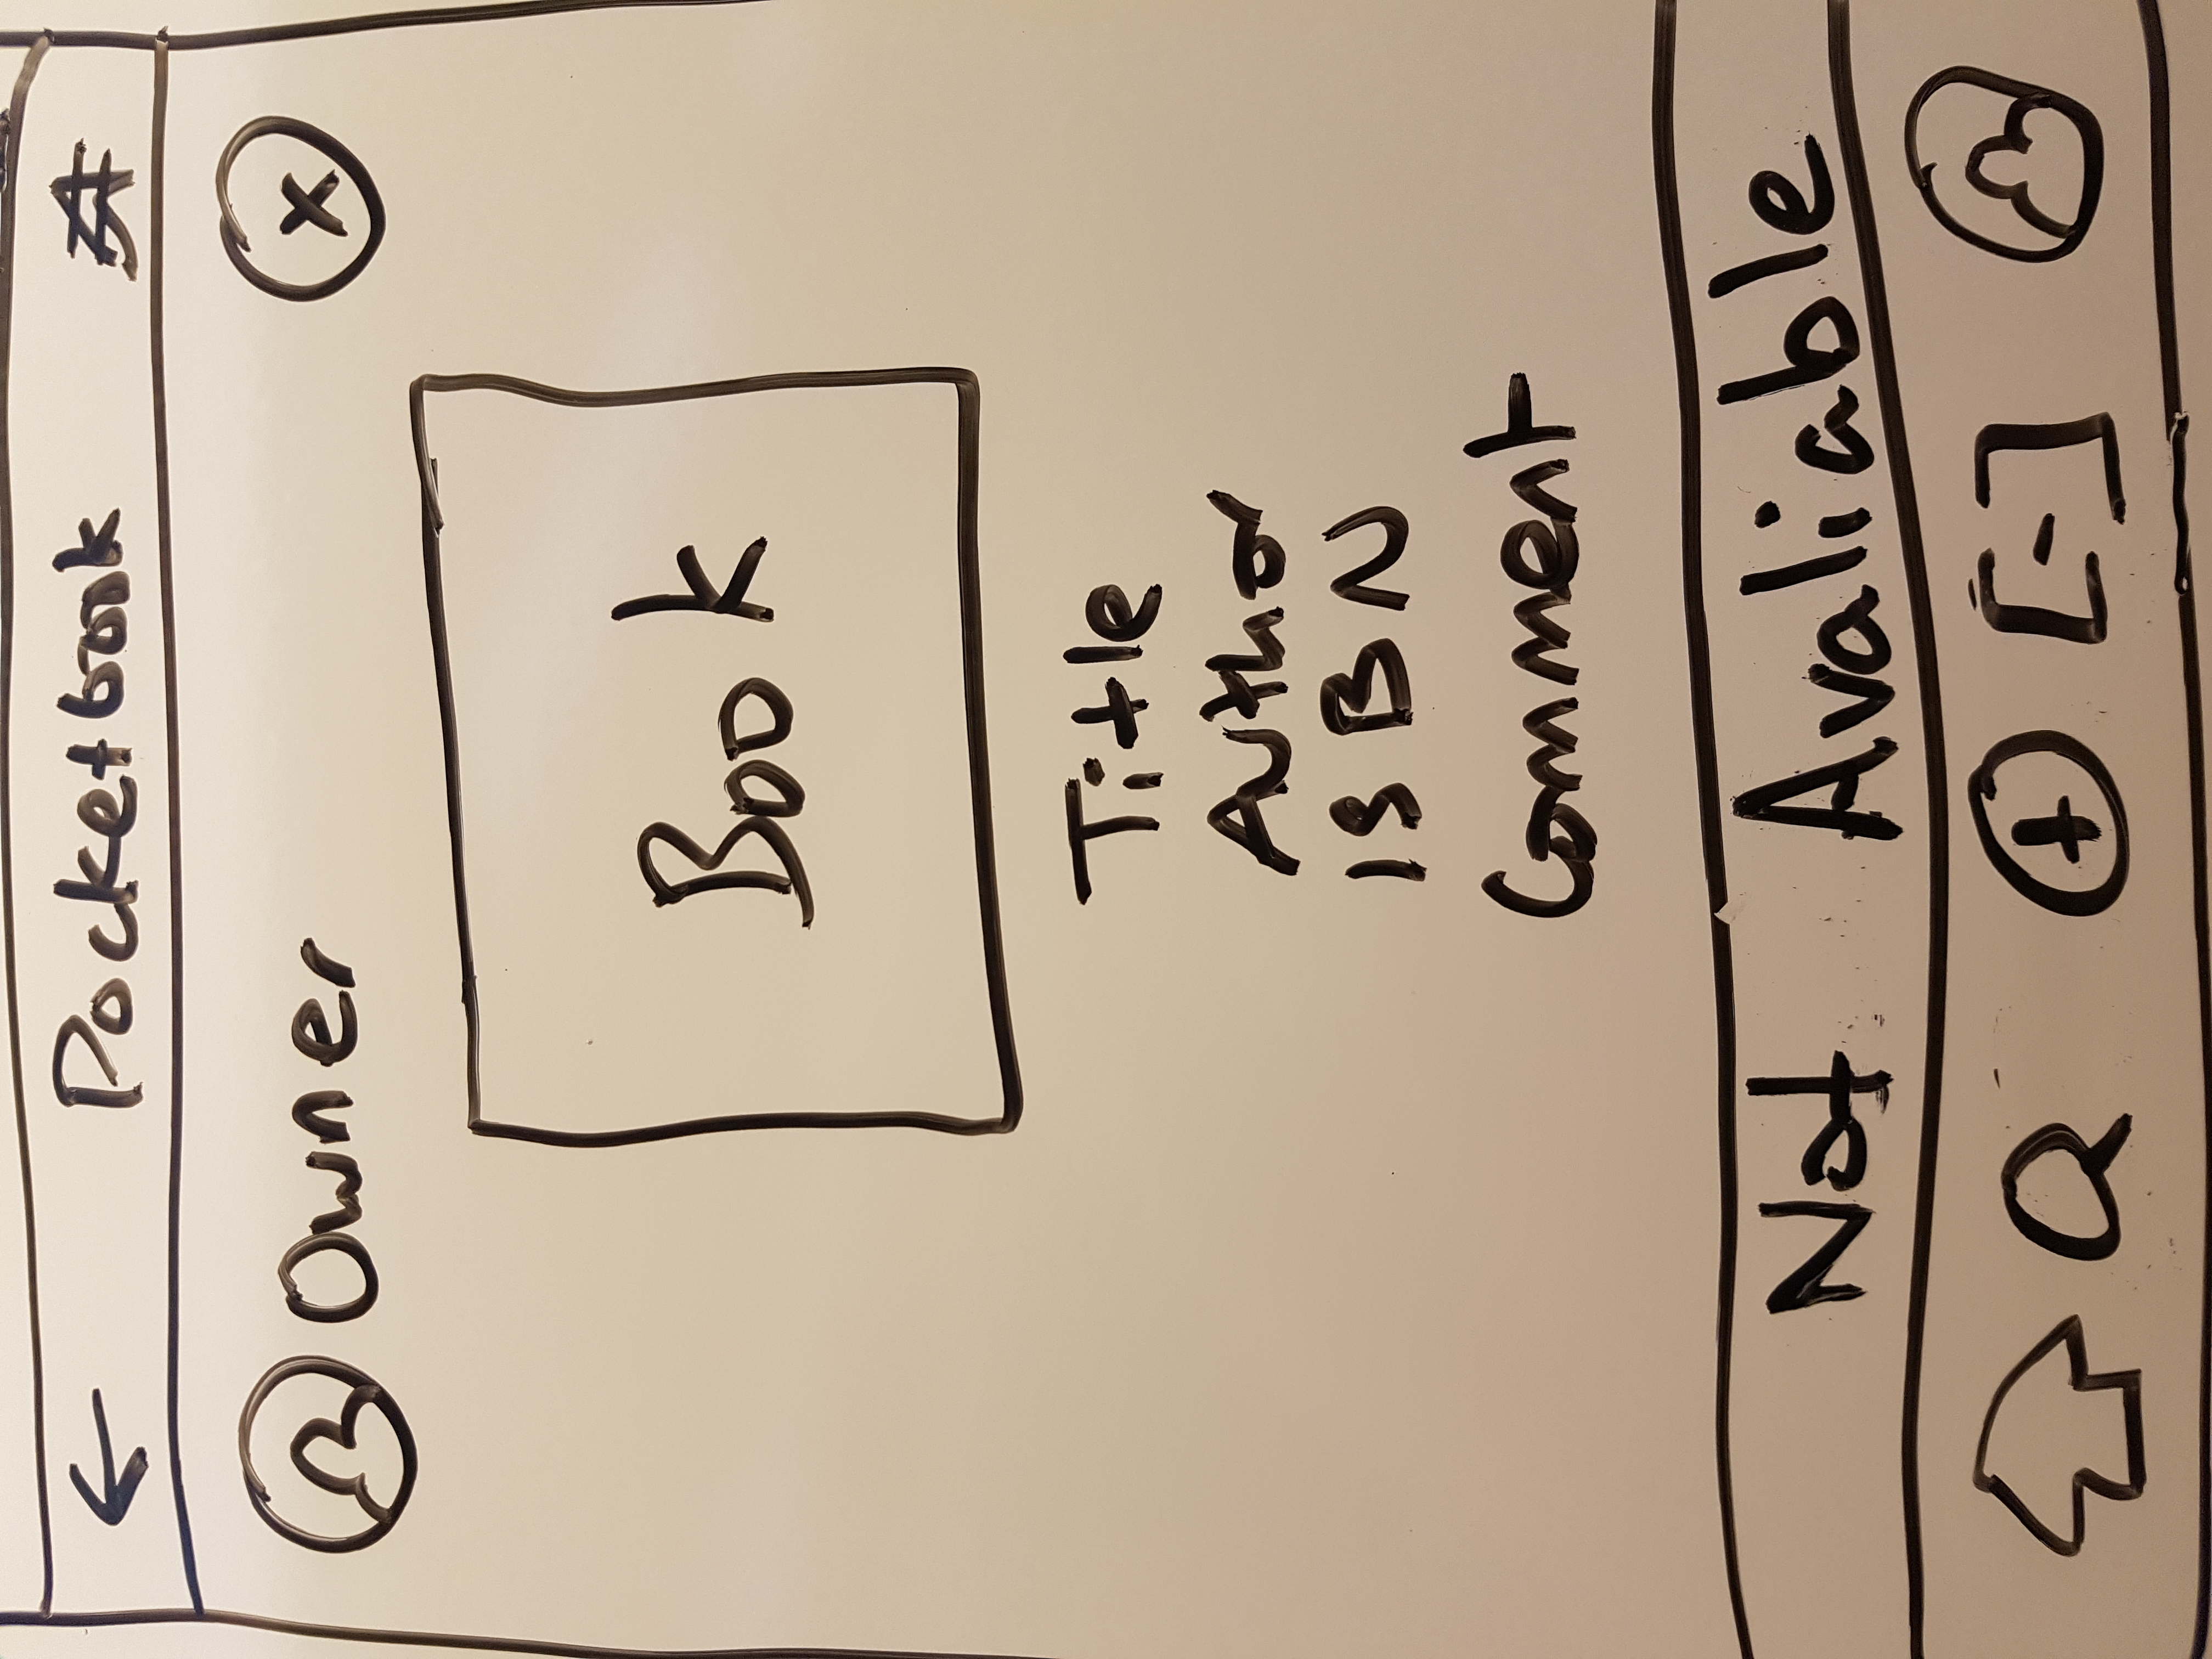 Pocketbook
Owner
Book
Title
Author
ISBN
Comment
Not Avaliable